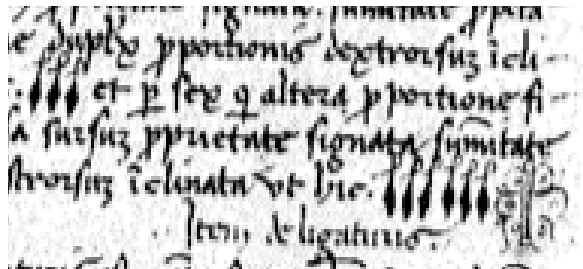 signata. sumitate ꝓpria
e duplex ꝓportionis dextrorsuꝫ īcli-
et ꝑ sex ꝙ altera ꝓportione fi-
a sursuꝫ ꝓprietate signata sum̄itate
strorsuꝫ īclinata vt hic.
Item de ligaturis.